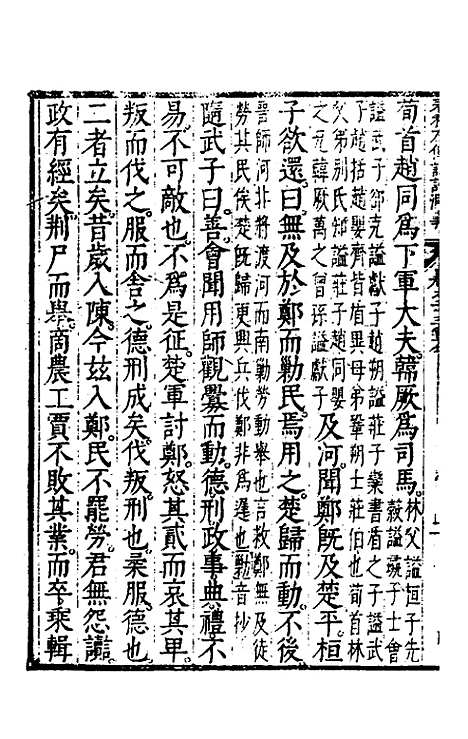 荀首趙同爲下軍大夫韓厥爲司馬林父謚桓子先
穀謚彘子士會
謚武子郤克謚獻子趙朔謚莊子欒書盾之子謚武
子趙括趙嬰齊皆盾異母弟鞏朔士莊伯也荀首林
父弟別氏知謚莊子趙同嬰
之兄韓厥萬之曾孫謚獻子
及河聞鄭既及楚平桓
子欲還曰無及於鄭而勦民焉用之楚歸而動不後
晉師河非將渡河而南勦勞動舉也言救鄭無及徒
勞其民俟楚既歸更興兵伐鄭非爲遲也勦音抄
隨武子曰善會聞用師觀釁而動德刑政事典禮不
易不可敵也不爲是征楚軍討鄭怒其貳而哀其卑
叛而伐之服而舍之德刑成矣伐叛刑也柔服德也
二者立矣昔歲入陳今兹入鄭民不罷勞君無怨讟
政有經矣荆尸而舉商農工賈不敗其業而卒乘輯